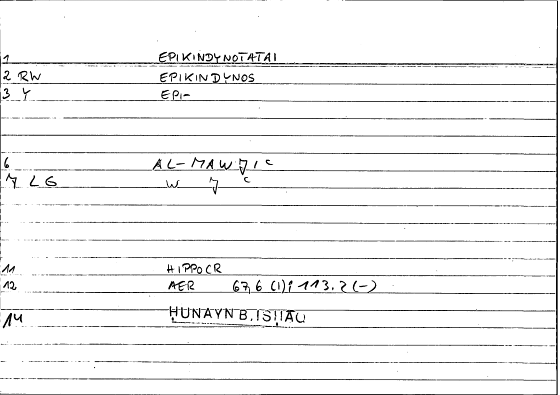 1 EPIKINDYNOTATAI
2 RW EPIKINDYNOS
3 Y EPI-
6 AL-MAWJIC
7 LG W J C
11 HIPPOCR
12 AER 67,6 (1); 113.2 (-)
14 ḤUNAYN B. ISḤAQ